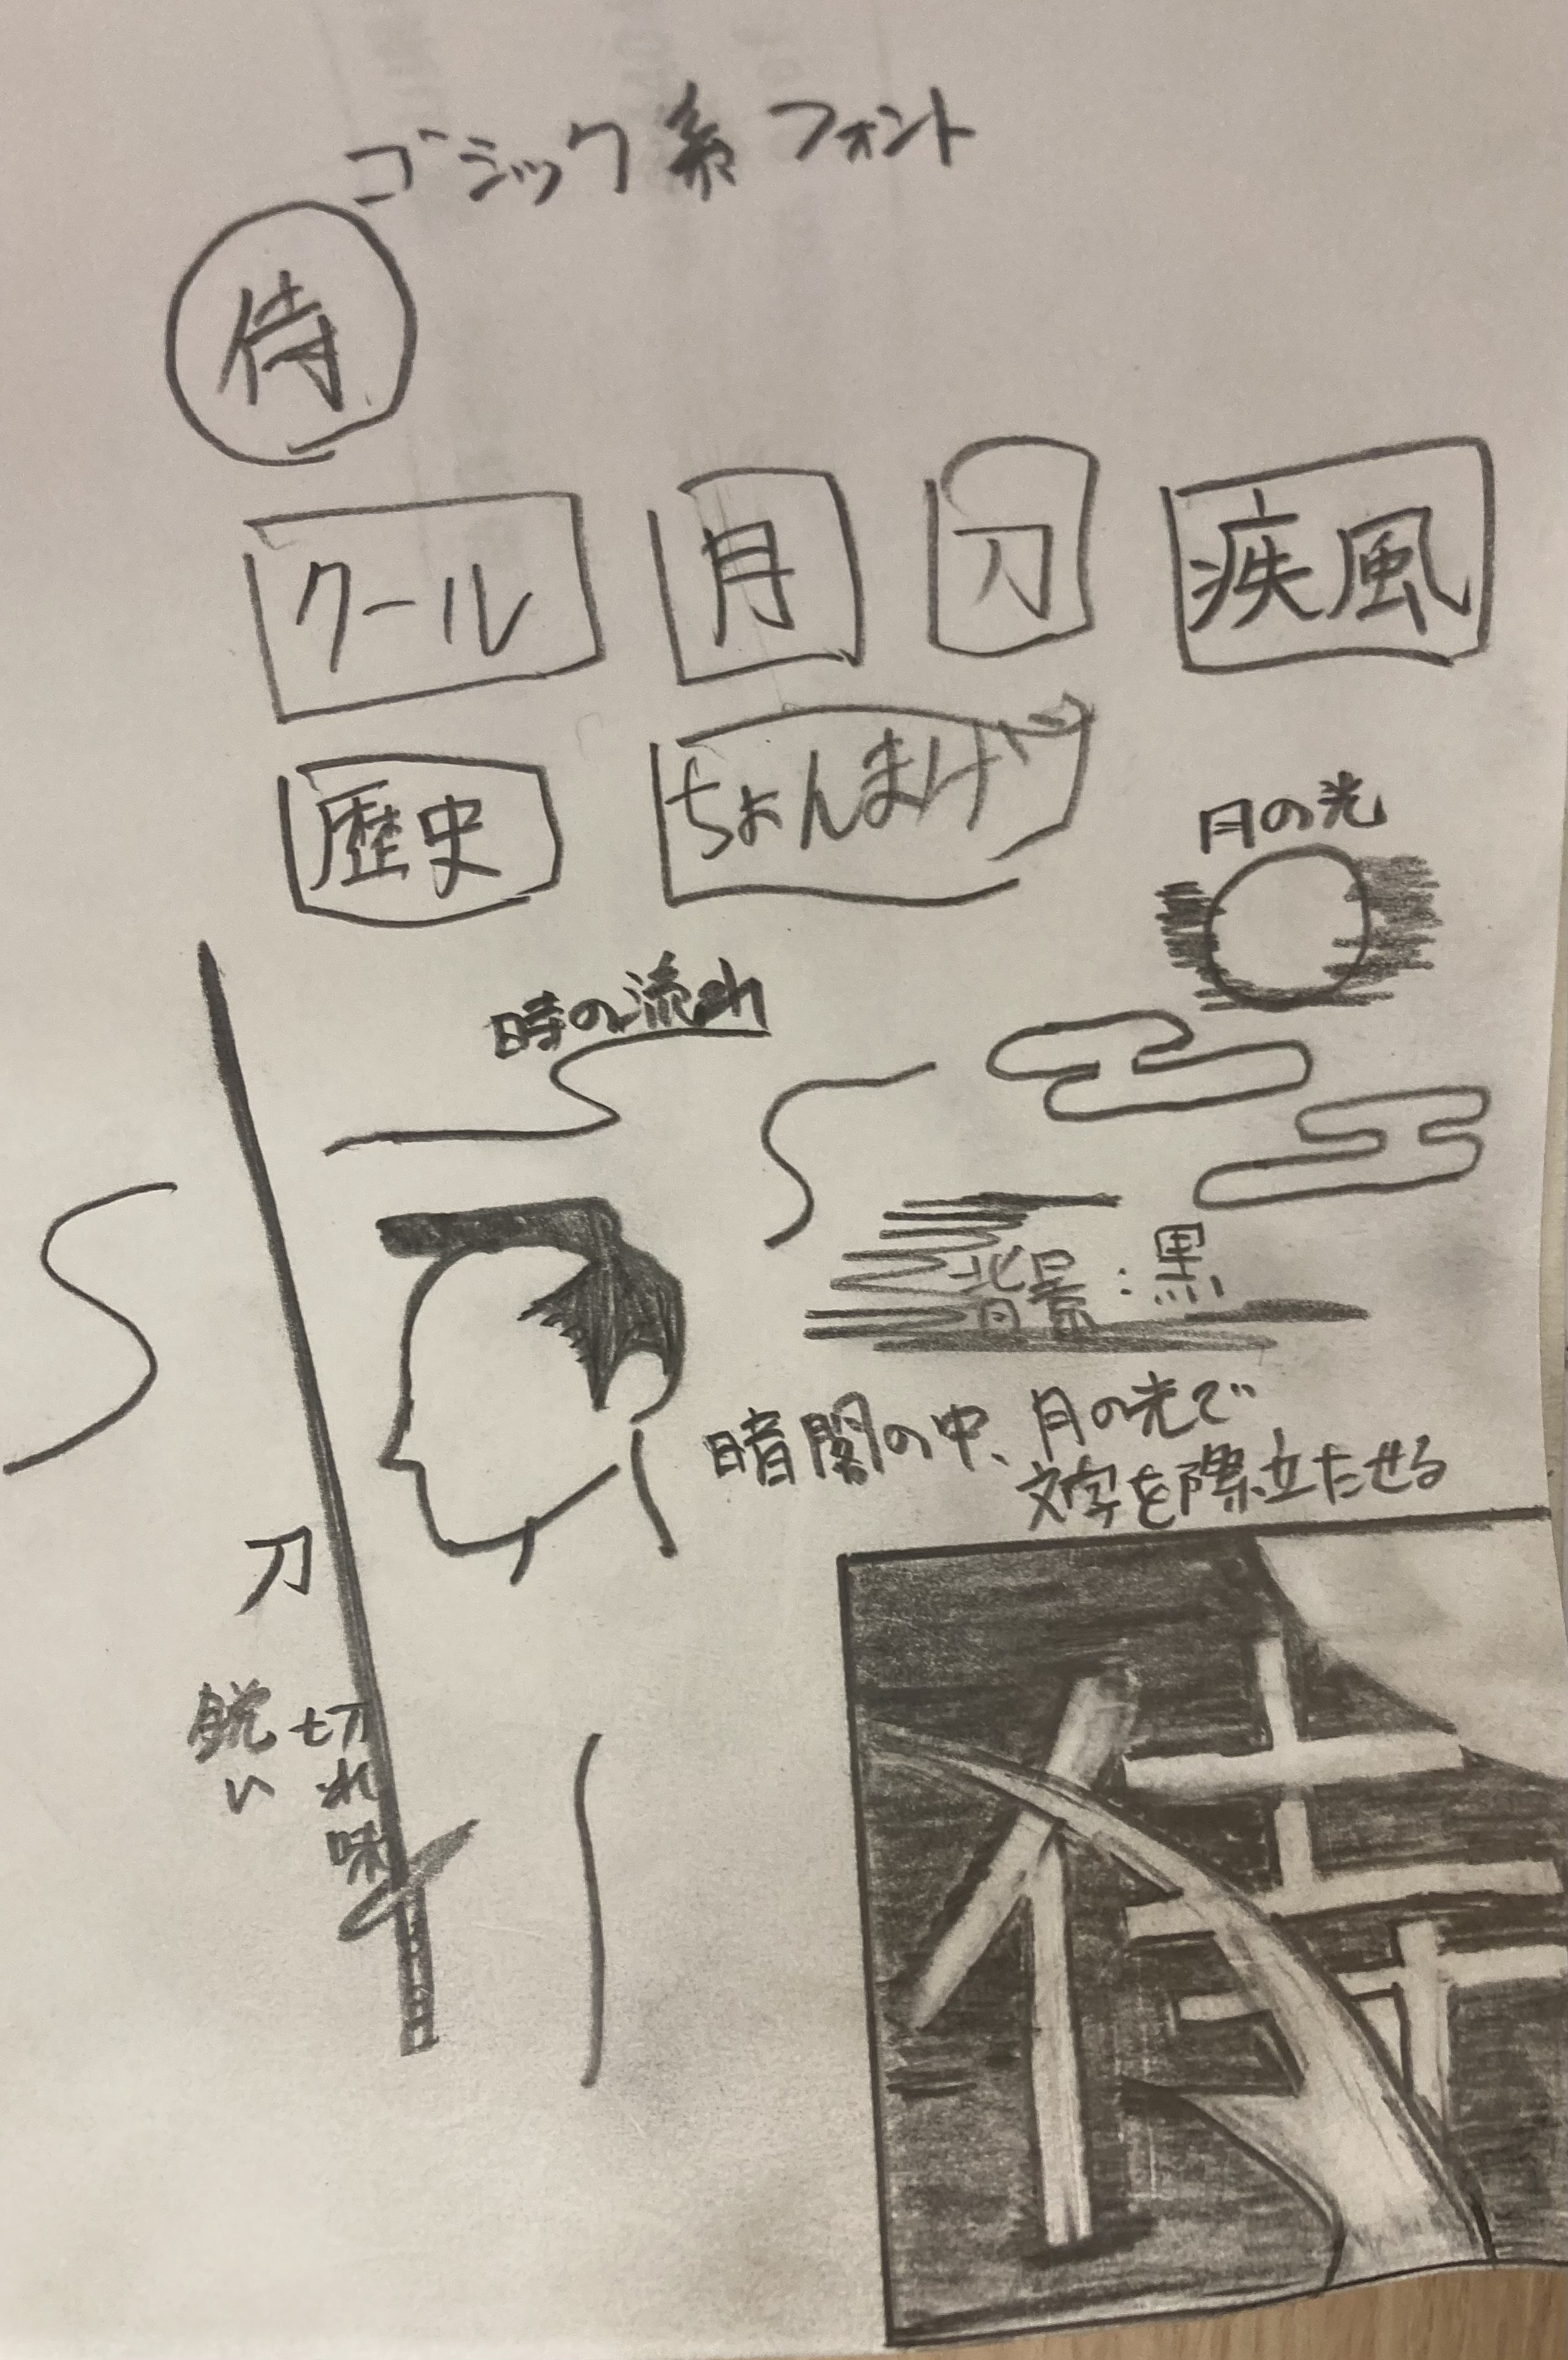 ゴシック系フォント
侍
クール
月
刀
疾風
歴史
ちょんまげ
月の光
時の流れ
背景:黒
暗闇の中、月の光で
文字を際立たせる
刀
切れ味
鋭い
侍